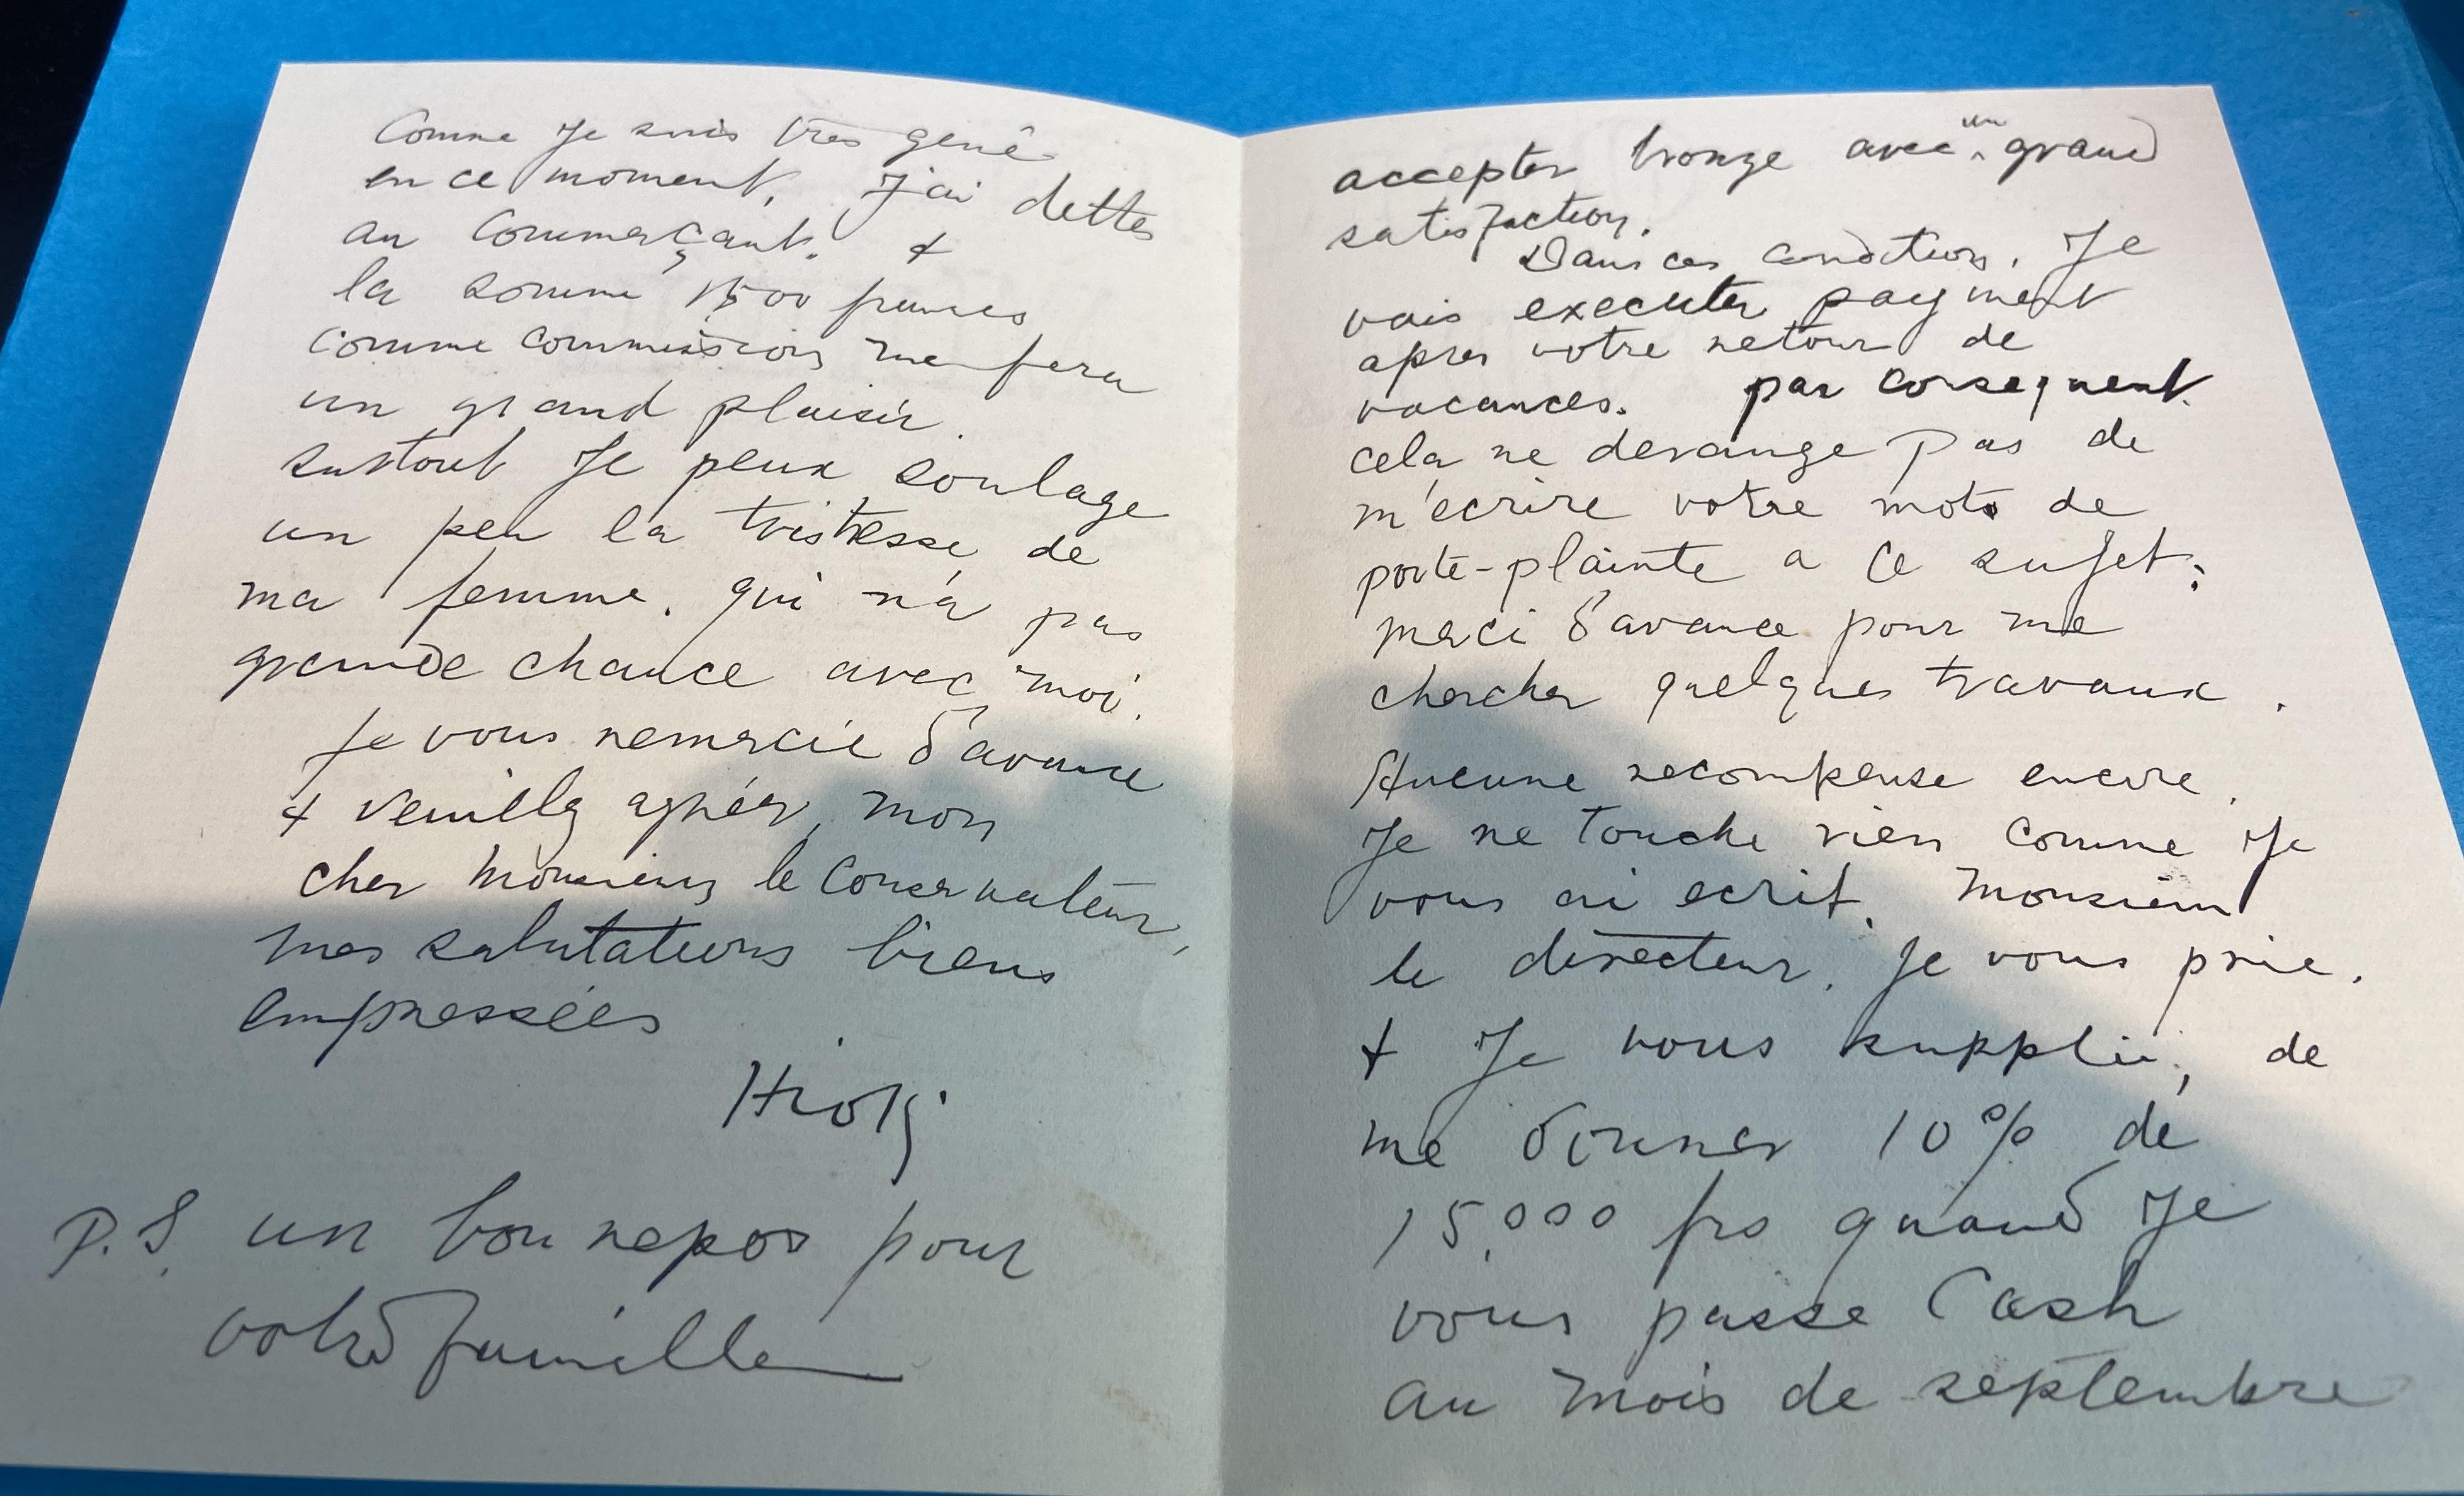 Comme Je suis très gené
en ce moment, J'ai dettes
au Commerçant. &
la somme 1500 francs
comme commission me fera
un grand plaisir.
surtout Je peux soulage
un peu la tristesse de
ma femme. qui n'a pas
grande chance avec moi.
Je vous remercie d'avance
& veuillez agréer, mon
cher Monsieur le Conservateur,
mes salutations biens
empressées
Hioki
P.S. un bon repos pour
votre famille
accepter bronze avec un grand
satisfaction.
Dans ces condition, Je
vais executer payment
apres votre retour de
vacances. par consequent
cela ne derange pas de
m'ecrire votre mots de
porte-plainte a ce sujet;
merci d'avance pour me
chercher quelques travaux.
Aucune recompense encore,
Je ne touche rien comme Je
vous ai ecrit. Monsieur
le directeur. Je vous prie.
& Je vous supplie, de
me donner 10% de
15.000 frs quand Je
vous passe Cash
au mois de septembre